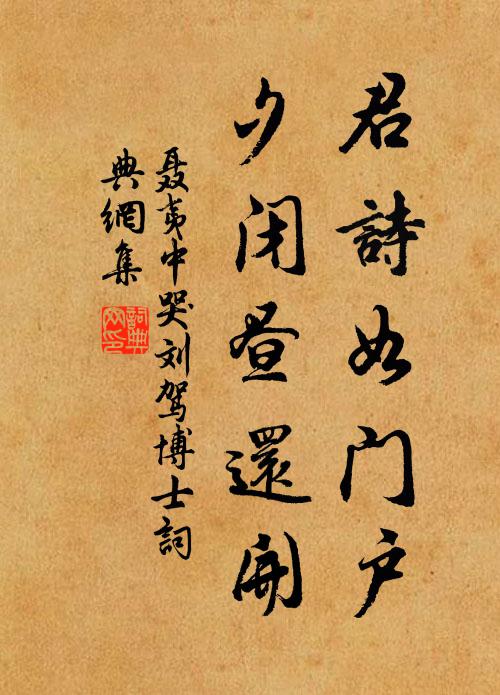 君詩如门户
夕闭昼還開
聂夷中哭刘驾博士詞
典網集
詞典
网印